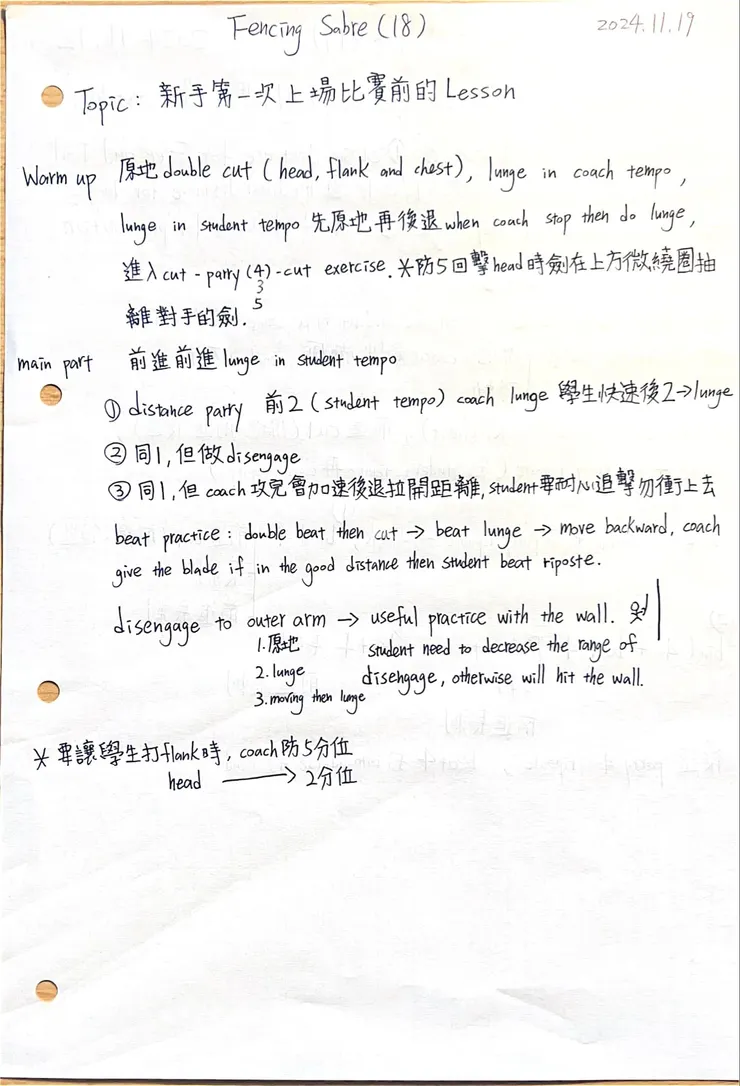 Fencing Sabre (18)
2024.11.19
Topic: 新手第一次上場比賽前的Lesson
Warm up 原地double cut (head, flank and chest), lunge in coach tempo,
lunge in student tempo 先原地再後退when coach stop then do lunge,
進入cut - parry (4) - cut exercise. ※防5回擊head時劍在上方微繞圈抽
3
5
離對手的劍.
main part 前進前進lunge in student tempo
① distance parry 前2 (student tempo) coach lunge 學生快速後2→lunge
② 同1, 但做disengage
③ 同1, 但coach攻完會加速後退拉開距離, student要耐心追擊勿衝上去
beat practice: double beat then cut → beat lunge → move backward, coach
give the blade if in the good distance then student beat riposte.
disengage to outer arm → useful practice with the wall.
1. 原地 student need to decrease the range of
2. lunge disehgage, otherwise will hit the wall.
3. moving then lunge
※ 要讓學生打flank時, coach防5分位
head → 2分位